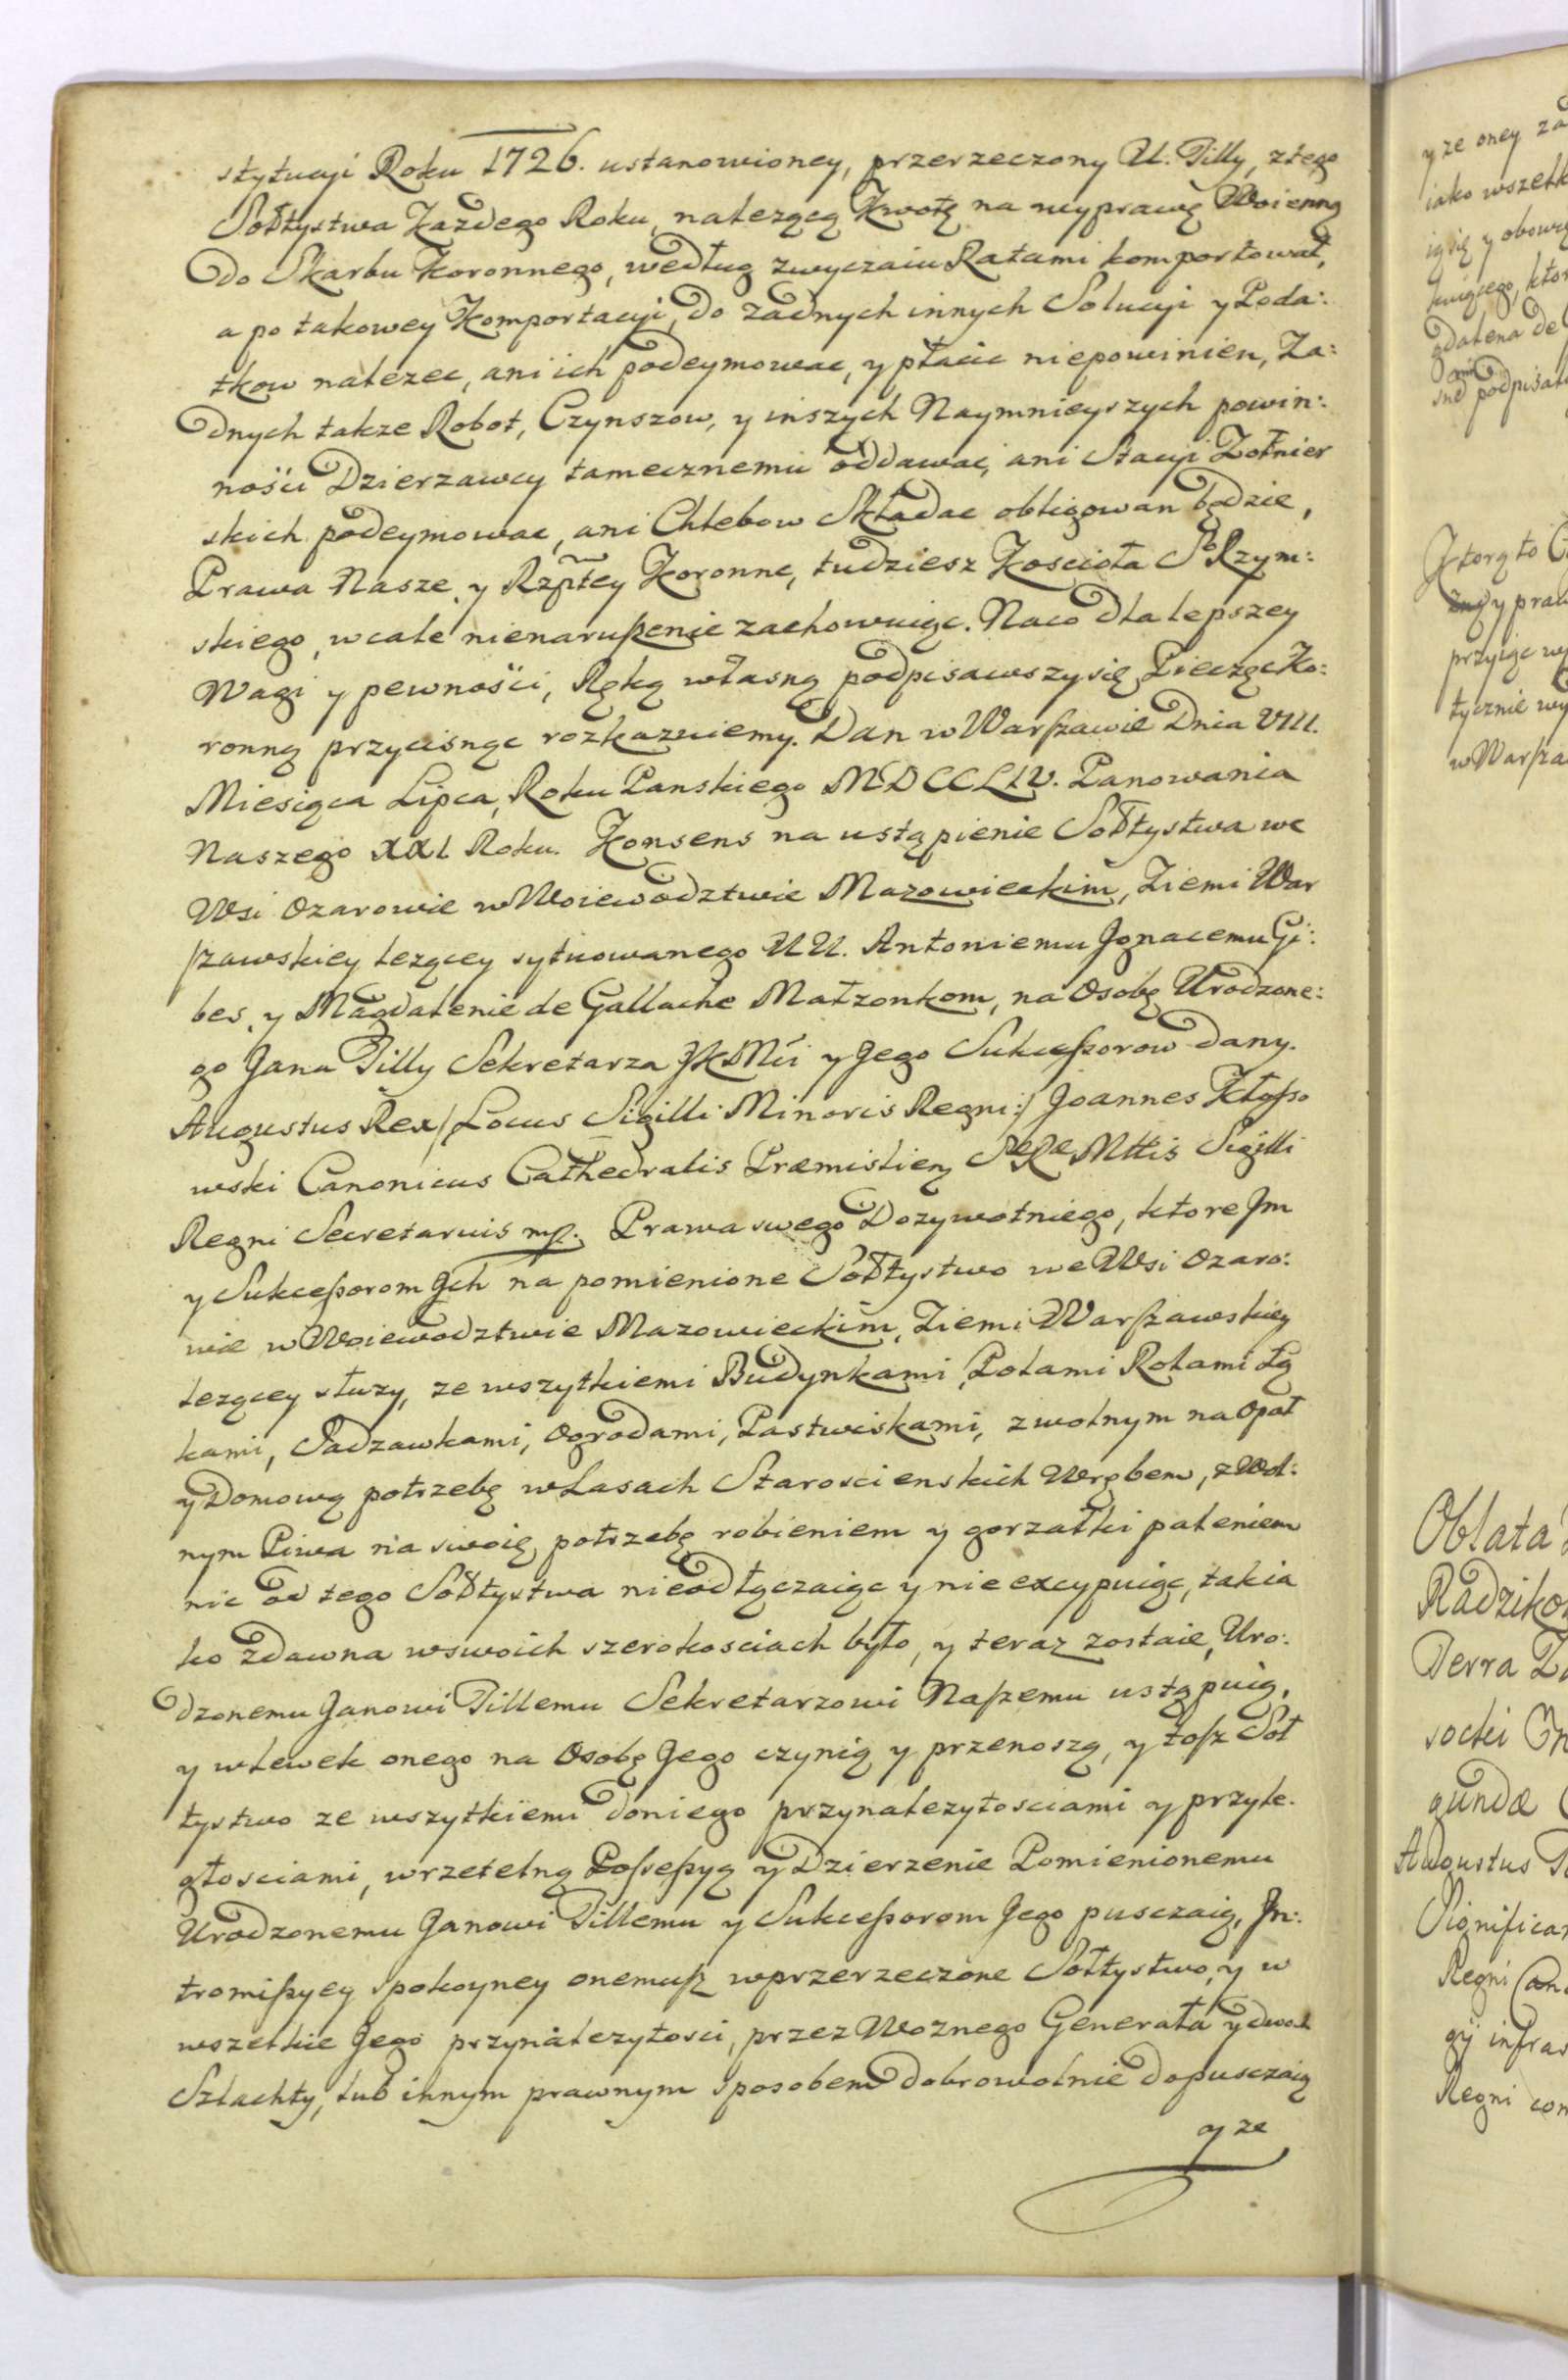 stytucyi Roku 1726. ustanowioney, przerzeczony U. Tilly, z tego
Sołtystwa Każdego Roku, nalezącą Kwotę na wyprawę Woienną
do Skarbu Koronnego, według zwyczaiu Ratami komportował,
a po takowey Komportacyi, do żadnych innych Solucyi y Poda:
tkow nalezec, ani ich podeymowac, y płacic niepowinien, Za:
dnych takze Robot, Czynszow, y inszych Naymnieyszych powin:
nosci Dzierzawcy tamecznemu oddawac, ani Stacyi Zołnier
skich podeymowac, ani Chlebow Składac obligowan będzie,
Prawa Nasze y Rzptey Koronne, tudziesz Koscioła S° Rzym:
skiego, wcale nienarußenie zachowuiąc. Naco dla lepszey
Wagi y pewnosci, Ręką własną podpisawszy się Pieczęc Ko:
ronną przycisnąc rozkazuiemy. Dan w Warßawie Dnia VIII.
Miesiąca Lipca, Roku Panskiego MDCCLIV. Panowania
Naszego XXI Roku. Konsens na ustąpienie Sołtystwa we
Wsi Ozarowie w Woiewodztwie Mazowieckim, Ziemi War
ßawskiey lezącey sytuowanego UU. Antoniemu Jgnacemu Gi:
bes, y Magdalenie de Gallache Małzonkom, na Osobę Urodzone:
go Jana Tilly Sekretarza JKMci y Jego Sukceßorow dany.
Augustus Rex /: Locus Sigilli Minoris Regni :/ Joannes Kłoßo
wski Canonicus Cathedralis Præmislien, SæRæMttis Sigilli
Regni Secretarius mp. Prawa swego Dozywotniego, ktore Jm
y Sukceßorom Jch na pomienione Sołtystwo we Wsi Ozaro:
wie w Woiewodztwie Mazowieckim, Ziemi Warßawskiey
lezącey słuzy, ze wszytkiemi Budynkami, Polami Rolami Łą
kami, Sadzawkami, Ogrodami, Pastwiskami, z wolnym na Opał
y Domową potrzebę w Lasach Staroscienskich Wrębem, z Wol:
nym Piwa na swoię potrzebę robieniem y gorzałki paleniem
nic od tego Sołtystwa nieodłączaiąc y nie excypuiąc, takia
ko zdawna w swoich szerokosciach było, y teraz zostaie, Uro:
dzonemu Janowi Tillemu Sekretarzowi Naßemu ustąpuią,
y wlewek onego na Osobę Jego czynią y przenoszą, y toß Soł
tystwo ze wszytkiemi doniego przynalezytosciami y przyle:
głosciami, w rzetelną Poßeßyą y Dzierzenie Pomienionemu
Urodzonemu Janowi Tillemu y Sukceßorom Jego pusczaią, Jn:
tromißyey spokoyney onemuß w przerzeczone Sołtystwo, y w
wszelkie Jego przynalezytosci, przez Woznego Generała y dwoch
Szlachty, lub innym prawnym sposobem dobrowolnie dopusczaią
y ze
y ze oney za
iako wszelk
ią się y obowi
kuiącego, kto
gdalena de
podpisał
Ktorą to
y praw
przyiąc wy
tycznie wy
w Warßa
Oblata
Radziko
Terra
socki
gundæ
Augustus
Significa
Regni Can
gÿ infras
Regni con